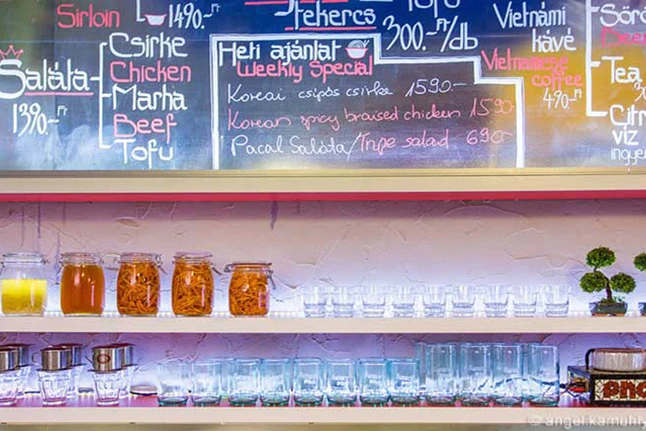 Sirloin
1490.-Ft
Saláta
1390.-Ft
Csirke
Chicken
Marha
Beef
Tofu
tekercs
Tofu
300.-Ft/db
Heti ajánlat
Weekly Special
Koreai csípős csirke 1590.-
Korean spicy braised chicken 1590.-
Pacal Saláta/Tripe salad 690.-
Vietnámi
kávé
Vietnamese
coffee
490.-Ft
Sör
Beer
Tea
Citr
víz
ingye
© angel.kamuhl